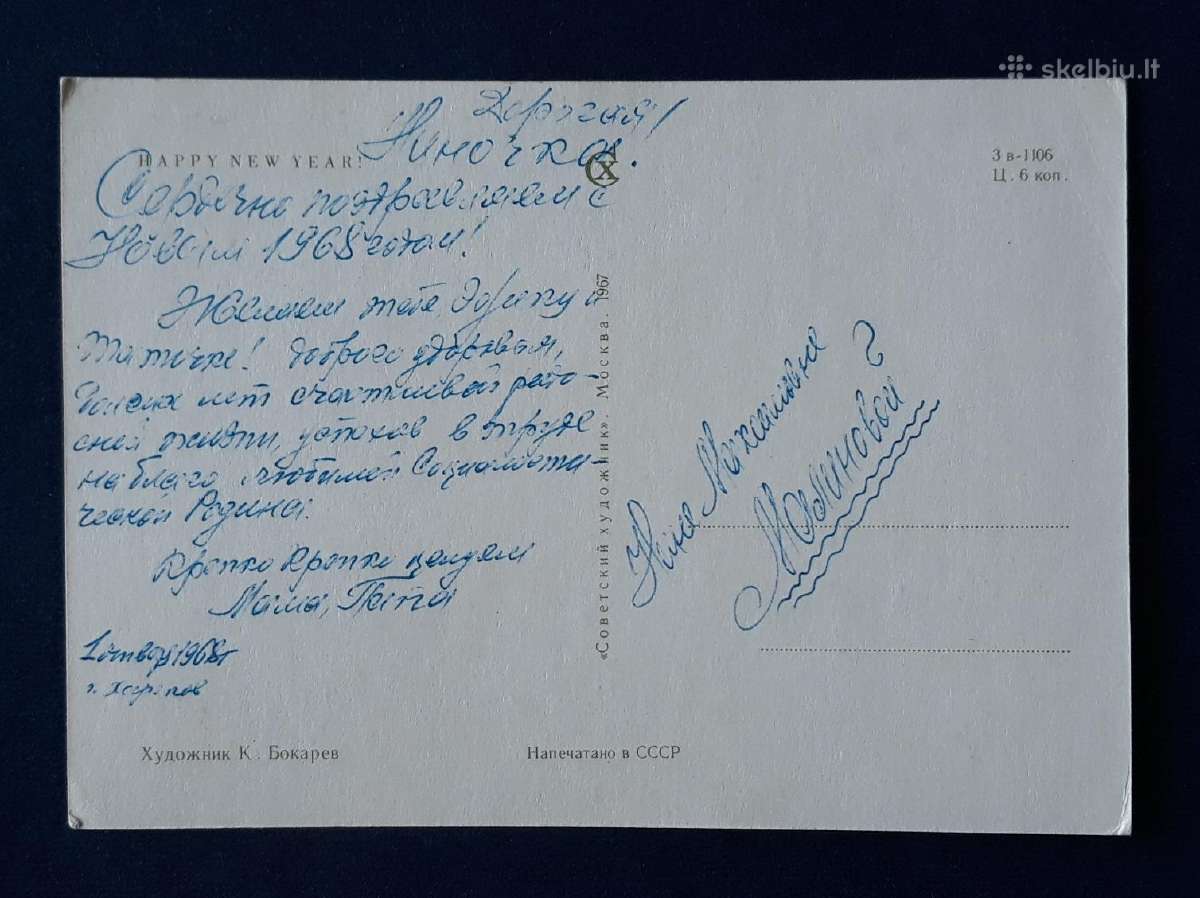 skelbiu.lt
Дорогая!
Ниночка!
HAPPY NEW YEAR!
СХ
3 в-1106
Ц. 6 коп.
Сердечно поздравляем с
Новым 1968 годом!
Желаем тебе, Эдику и
Таточке! доброго здоровья,
долгих лет счастливой радо-
сной жизни, успехов в труде
на благо любимой Социалисти-
ческой Родины.
Крепко крепко целуем
Мама, Папа
1968г
г. Харьков
«Советский художник». Москва. 1967
Нине
Малиновой
Художник К. Бокарев
Напечатано в СССР